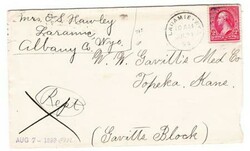 Mrs. O. S. Hawley
Laramie,
Albany Co. Wyo.
LARAMIE
W. W. Gavitt's Med Co
Topeka, Kans.
(Gavitts Block)
Rept
AUG 7 -